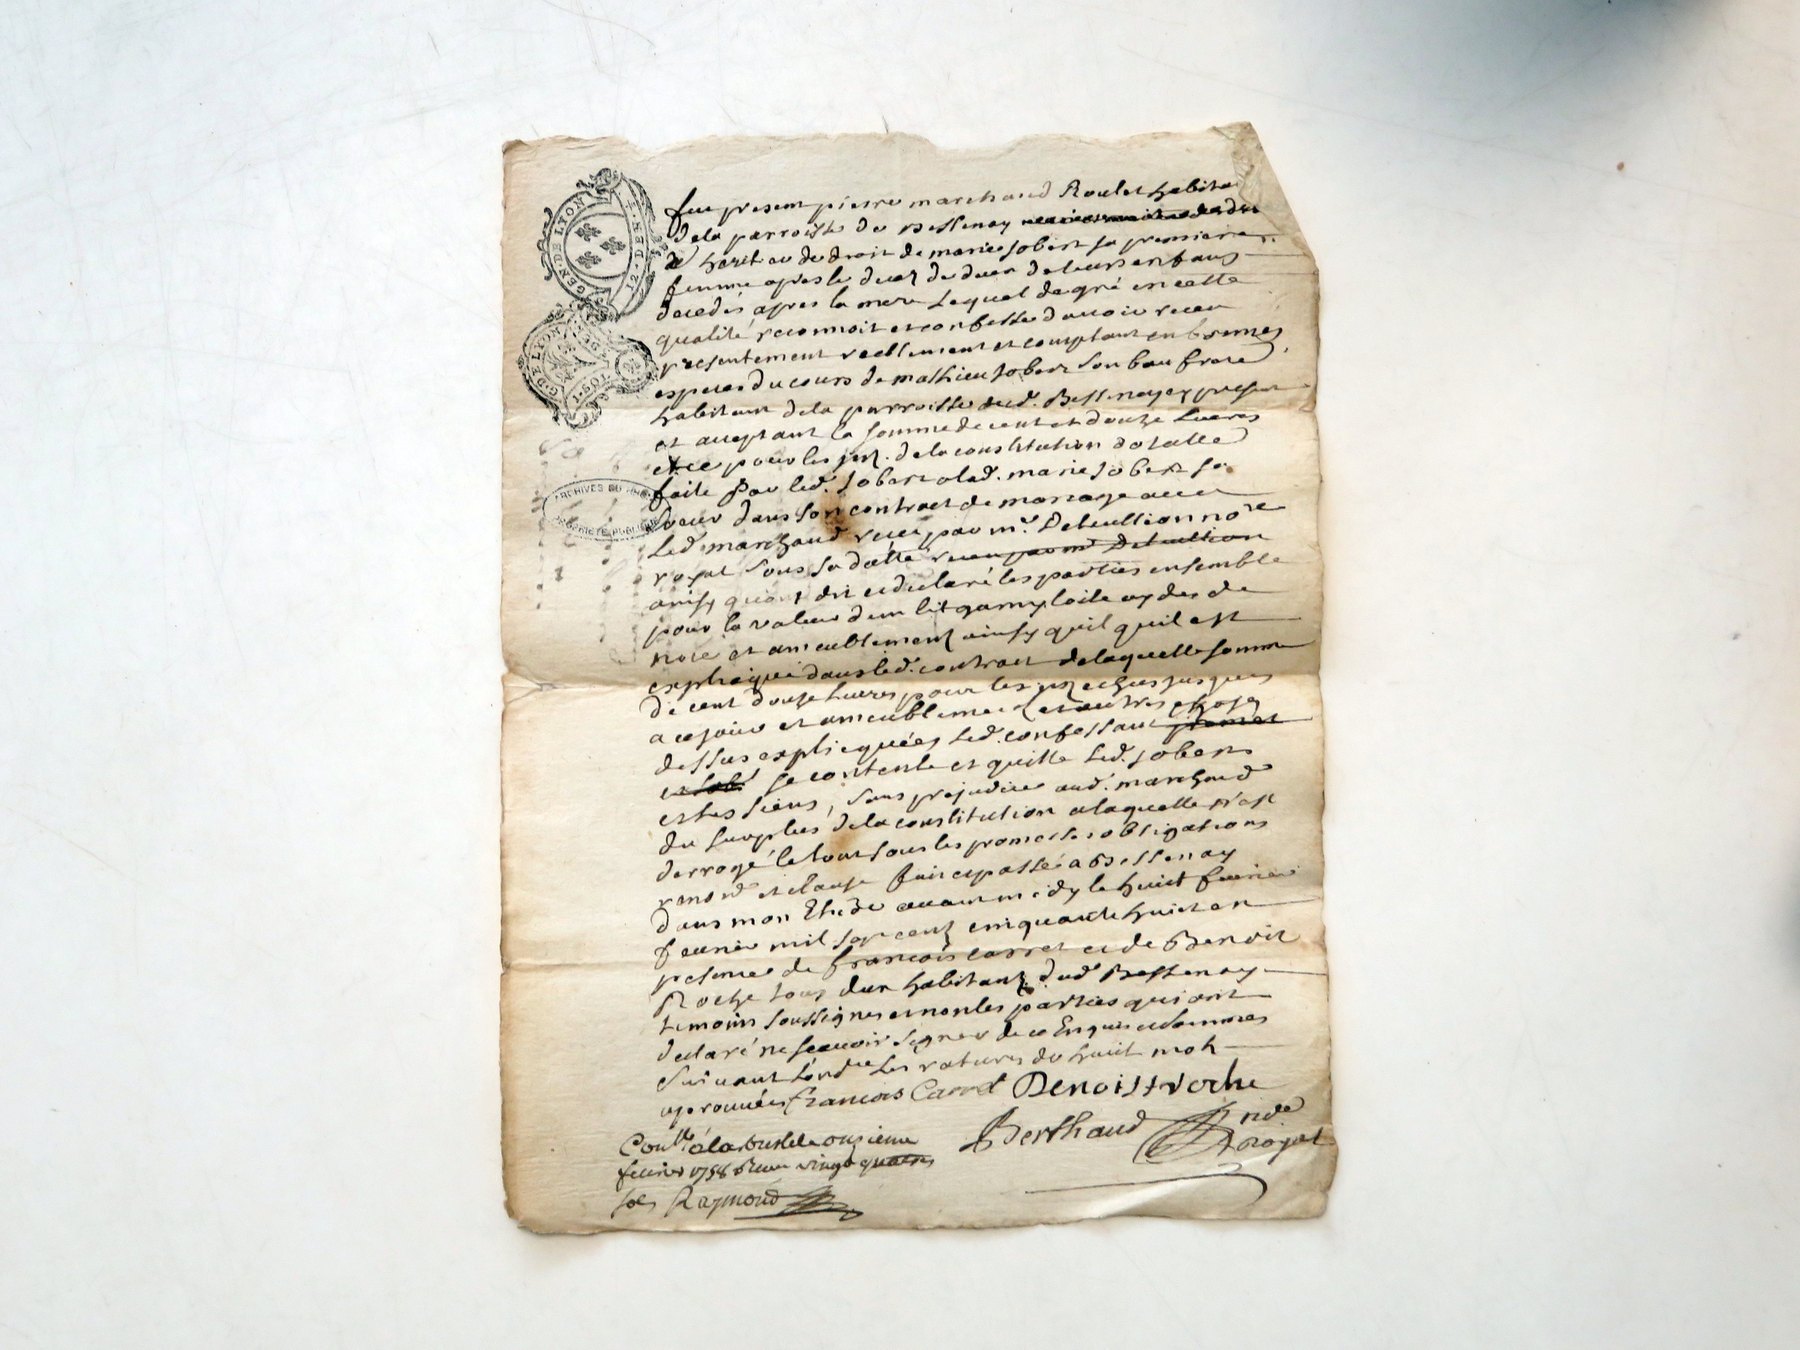 GEN. DE LYON
12. DEN. I.
G. DE LYON
I. SOL.
ARCHIVES DU
PROPRIÉTÉ PUBLIQUE
fut present pierre marchand Roulet habita
dela parroisse de Bessenay
de heritier de droit de marie Jobert sa premiere
femme apres le decez de deux de leurs enfans
decedés apres la mere Lequel de gré en cette
qualité reconnoit et confesse d'avoir receu
presentement reellement et comptant en bonnes
especes du cours de mathieu Jobert Son beau frere
habitant dela parroisse dud. Bessenay cy present
et acceptant la somme de cent et douze Livres
et ce pour les de la constitution dotalle
faite Par led. Jobert a lad. marie Jobert sa
soeur dans son contract de mariage avec
Led. marchand receu par mr. Deteullion nore
royal sous sa datte receu par mr Deteullion
ainsy quont dit et declaré les parties ensemble
pour la valeur dun lit garny toile aydes de
noce et ameublement ainsy quil quil est
expliqué dans led. contract de laquelle somme
de cent douze livres pour les echus jusques
a ce jour et ameublement et autres choses
dessus expliquées Led. confessant promet
et se contente et quitte Led. Jobert
et les siens, sans prejudice aud. marchand
du surplus de la constitution a laquelle n'est
derrogé le tout sous les promesses obligations
renond et clause fait et passé a Bessenay
dans mon Etude avant midy le huit fevrier
fevrier mil sept cent cinquante huit en
presence de françois Carret et de Benoit
Roche tous deux habitans dud. Bessenay
temoins soussignes et non les parties qui ont
declaré ne scavoir signer de ce Enquis et sommés
suivant Lord. Les ratures de huit mots
aprouvées françois Carret Benoist roche
Berthaud nre royal
Conllé à la Bresle le onzieme
fevrier 1758 Reçu vingt quatre
sols Raymond